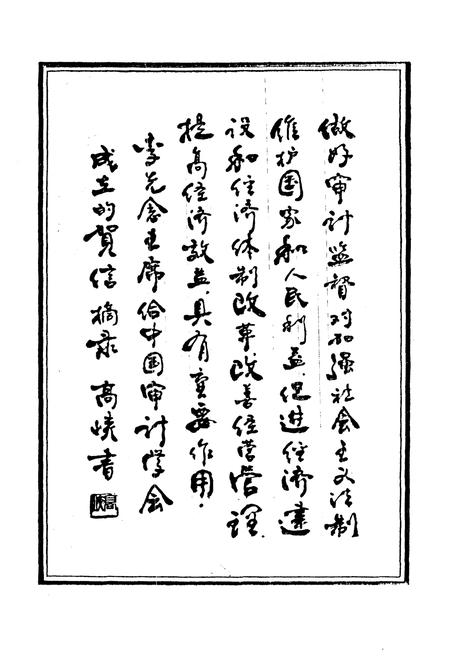 做好审计监督对加强社会主义法制
维护国家和人民利益，促进经济建
设和经济体制改革，改善经营管理，
提高经济效益，具有重要作用。
李先念主席给中国审计学会
成立的贺信摘录 高 书